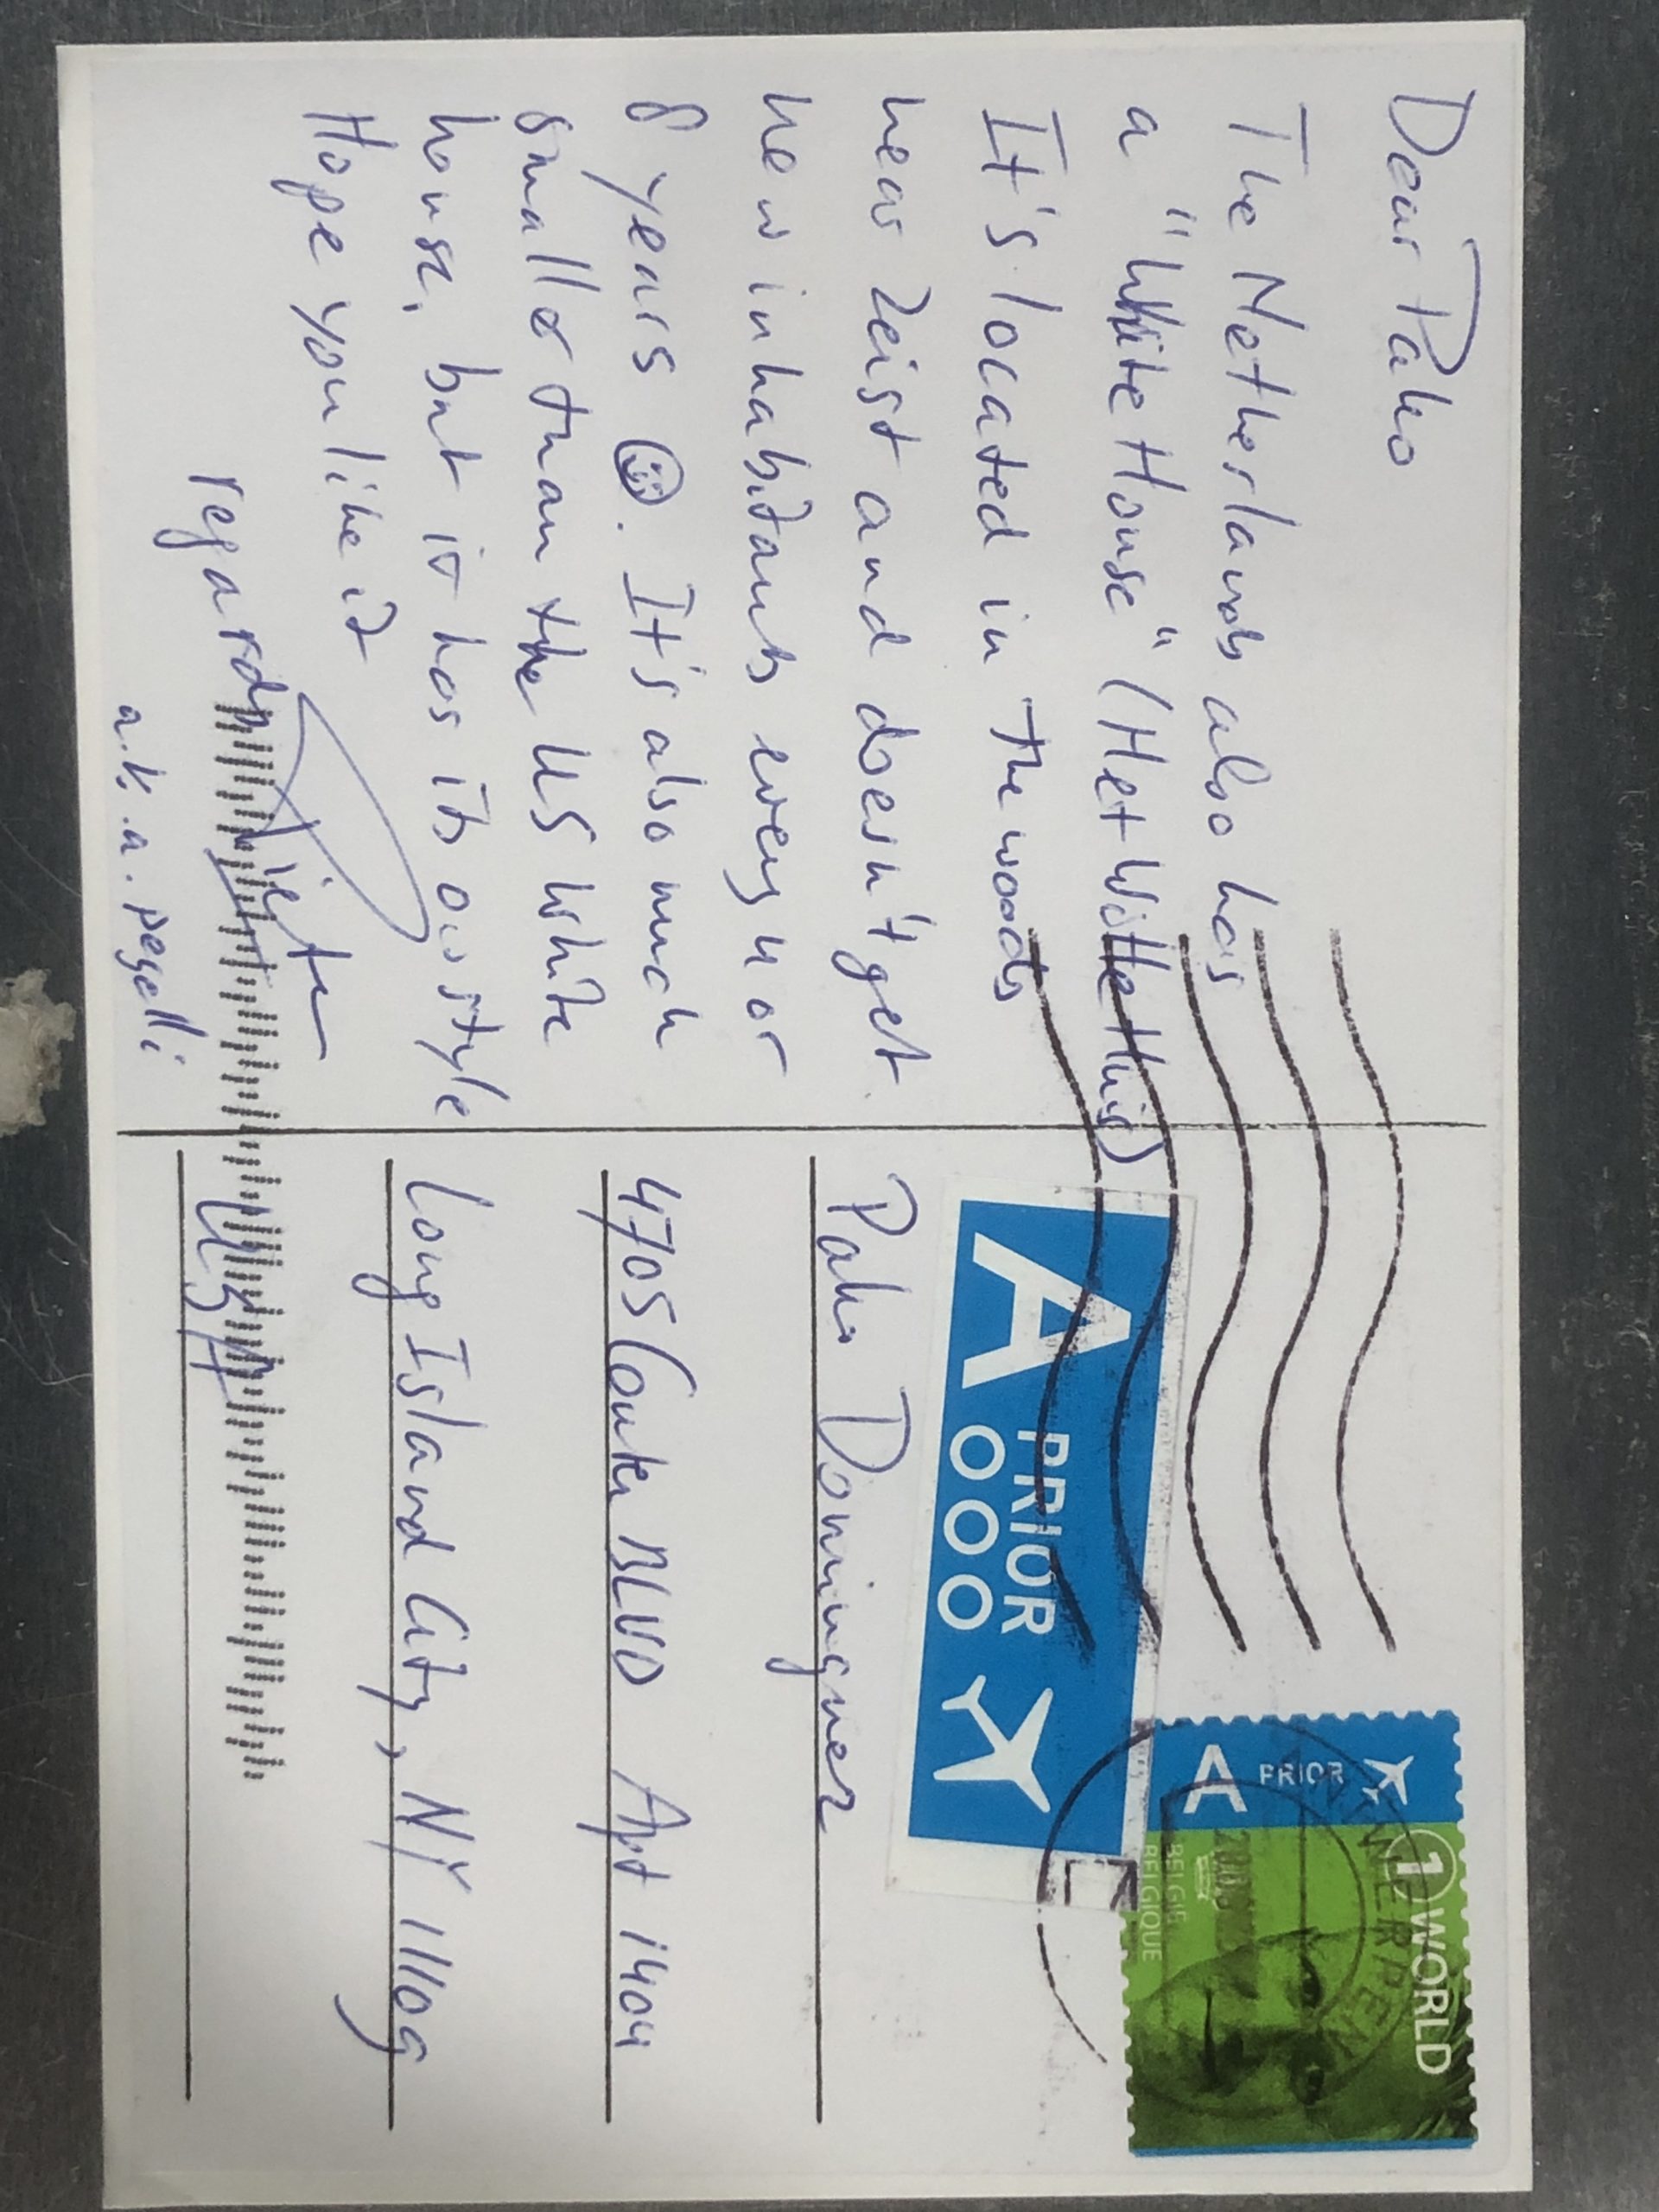 Dear Pako
The Netherlands also has
a "White House" (Het Witte Huis)
It's located in the woods
near Zeist and doesn't get
new inhabitants every 4 or
8 years ☺. It's also much
smaller than the US White
house, but it has its own style
Hope you like it
regards
a.k.a. pegelli
A PRIOR
1 WORLD
BELGIE
BELGIQUE
ANTWERPEN
A PRIOR
Pako Dominguez
4705 Center BLVD Apt 1404
Long Island City, NY 11109
USA